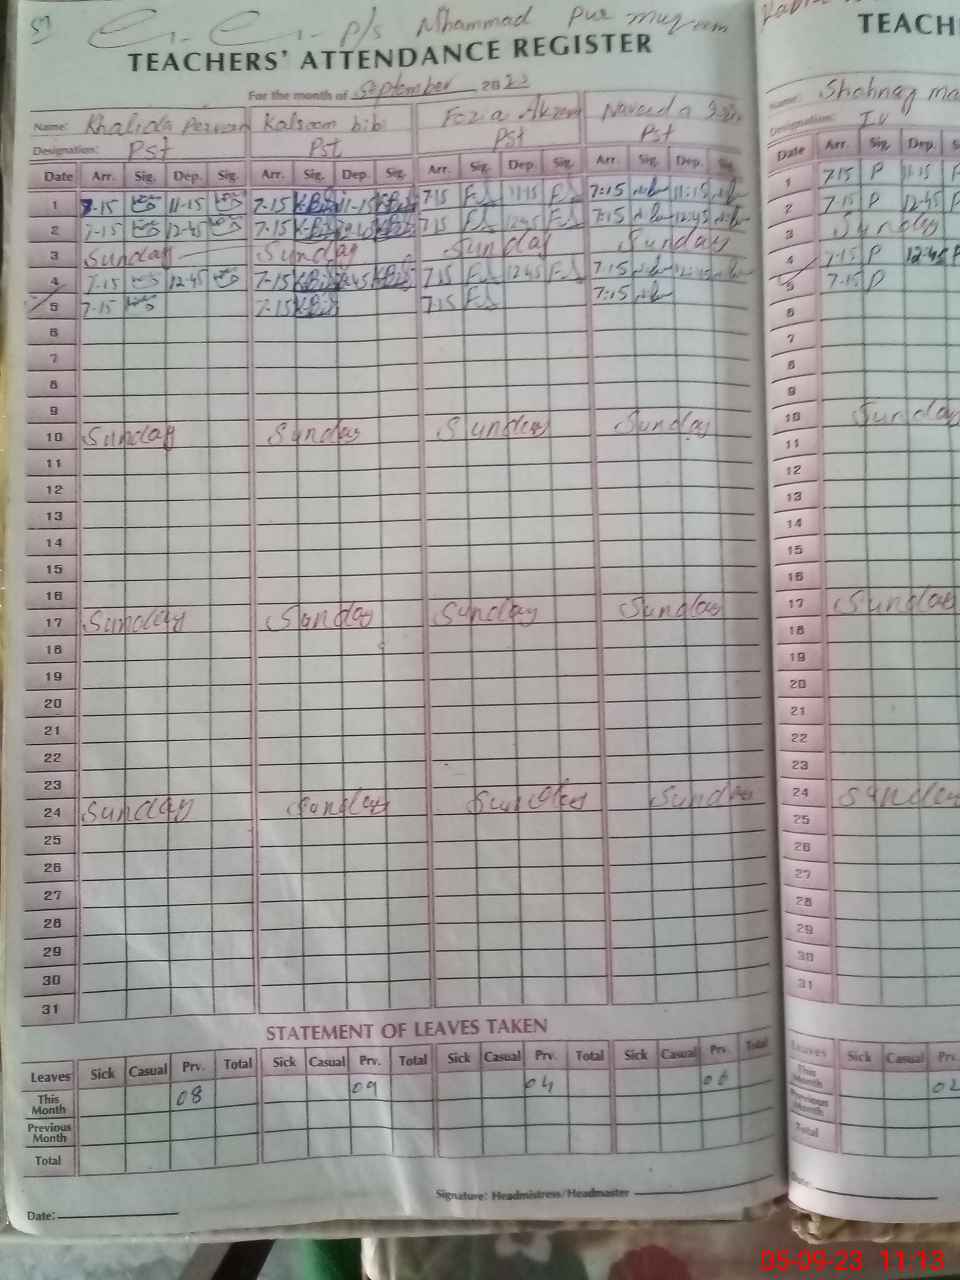 P/s Mhammad Pur muqeem
TEACHERS' ATTENDANCE REGISTER
For the month of September 2023
Name: Khalida Perveen Kalsoom bibi Fozia Akram Naveeda
Designation: Pst Pst Pst Pst
Date Arr. Sig. Dep. Sig. Arr. Sig. Dep. Sig. Arr. Sig. Dep. Sig. Arr. Sig. Dep. Sig.
1 7-15 11-15 7-15 K-Bibi 11-15 K-Bibi 7 15 11-15 7:15 11:15
2 7-15 12-45 7-15 K-Bibi 12-45 K-Bibi 7 15 12 45 7:15 12:45
3 Sunday Sunday Sunday Sunday
4 7-15 12-45 7-15 K-Bibi 12-45 K-Bibi 7 15 12 45 7:15 12:45
5 7-15 7-15 K-Bibi 7 15 7:15
6
7
8
9
10 Sunday Sunday Sunday Sunday
11
12
13
14
15
16
17 Sunday Sunday Sunday Sunday
18
19
20
21
22
23
24 Sunday Sunday Sunday Sunday
25
26
27
28
29
30
31
STATEMENT OF LEAVES TAKEN
Leaves Sick Casual Prv. Total Sick Casual Prv. Total Sick Casual Prv. Total Sick Casual Prv. Total
This Month 08 09 04 06
Previous Month
Total
Signature: Headmistress/Headmaster
Date:
TEACH
Name: Shahnaz
Designation: IV
Date Arr. Sig. Dep. S
1 7-15 P 11-15 P
2 7-15 P 12-45 P
3 Sunday
4 7-15 P 12-45 P
5 7-15 P
6
7
8
9
10 Sunday
11
12
13
14
15
16
17 Sunday
18
19
20
21
22
23
24 Sunday
25
26
27
28
29
30
31
Leaves Sick Casual Prv.
This Month 02
Previous Month
Total
Date:
05-09-23 11:13